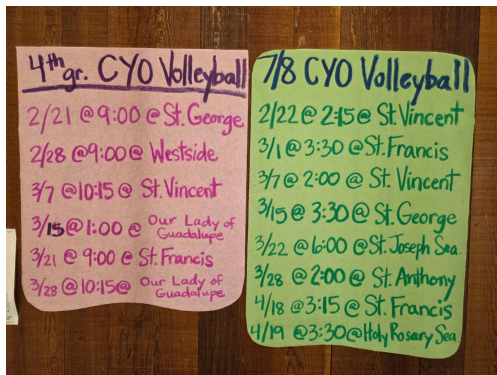 4th gr. CYO Volleyball
2/21 @ 9:00 @ St. George
2/28 @ 9:00 @ Westside
3/7 @ 10:15 @ St. Vincent
3/15 @ 1:00 @ Our Lady of
Guadalupe
3/21 @ 9:00 @ St. Francis
3/28 @ 10:15 @ Our Lady of
Guadalupe
7/8 CYO Volleyball
2/22 @ 2:15 @ St. Vincent
3/1 @ 3:30 @ St. Francis
3/7 @ 2:00 @ St. Vincent
3/15 @ 3:30 @ St. George
3/22 @ 6:00 @ St. Joseph Sea.
3/28 @ 2:00 @ St. Anthony
4/18 @ 3:15 @ St. Francis
4/19 @ 3:30 @ Holy Rosary Sea.